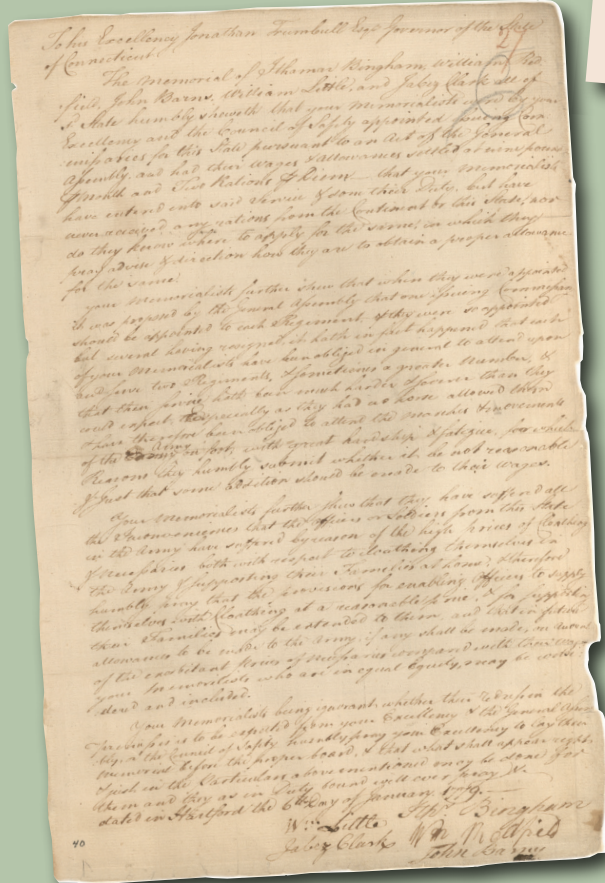 To his Excellency Jonathan Trumbull Esqr Governor of the State
of Connecticut
The Memorial of Ithamar Bingham, William Red
field, John Barns, William Little, and Jabez Clark all of
Sd State humbly sheweth that your Memorialists were by your
Excellency and the Council of Safety appointed Issuing Com
missaries for this State pursuant to an Act of the General
Assembly, and had their wages & allowances settled at nine pounds
⅌ Month and Two Rations ⅌ Diem that your Memorialists
have entered into said Service & done their Duty, but have
never received any rations from the Continent or this State, nor
do they know where to apply for the same, in which they
pray advise & direction how they are to obtain a proper allowance
for the same.
your Memorialists further shew that when they were appointed
it was proposed by the General Assembly that one issuing Commissary
should be appointed to each Regiment, & they were so appointed
but several having resigned, it hath in fact happened that each
of your Memorialists have been obliged in general to attend upon
and serve two Regiments, & sometimes a greater Number, &
that their service hath been much harder & severer than they
could expect, especially as they had no horse allowed them
& have therefore been obliged to attend the marches & movements
of the Army on foot, with great hardship & fatigue, for which
Reasons they humbly submit whether it be not reasonable
& Just that some Addition should be made to their wages.
Your Memorialists further shew that they have suffered all
the Inconveniences that the officers or Soldiers from this State
in the Army have suffered by reason of the high prices of Cloathing
& necessaries both with respect to cloathing themselves in
the Army & supporting their Families at home, & therefore
humbly pray that the provisions for enabling Officers to supply
themselves with Cloathing at a reasonable price, & for supporting
their Families may be extended to them, and that in future
allowances to be made to the Army, if any shall be made, on Account
of the exorbitant prices of necessaries compared with their wages
your Memorialists who are in equal Equity, may be consi
dered and included.
Your Memorialists being ignorant whether their Redress in the
premises is to be expected from your Excellency & the General Assem
bly, or the Council of Safety humbly pray your Excellency to lay their
Memorial before the proper board, & that what shall appear right
& just in the Particulars above mentioned may be done for
them and they as in Duty bound will ever pray &c.
dated in Hartford the 6th Day of January 1779.
Ithr Bingham
Wm Little
Wm Redfield
Jabez Clark
John Barns
40